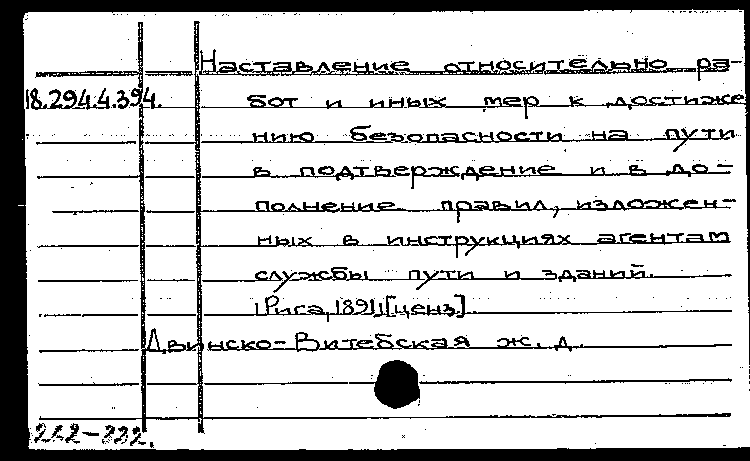 Наставление относительно ра-
18.294.4.394. бот и иных мер к достиже
нию безопасности на пути
в подтверждение и в до-
полнение правил, изложен-
ных в инструкциях агентам
службы пути и зданий.
[Рига, 1891], [ценз.]
Двинско-Витебская ж. д.